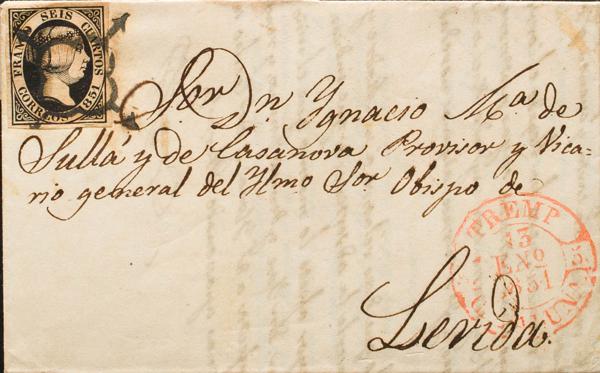 FRANCO SEIS CUARTOS
CORREOS 1851
Sor Dn Ygnacio Ma. de
Sullá y de Casanova Provisor y Vica=
rio general del Ylmo Sor Obispo de
Lerida.
TREMP
13
ENO
1851
CATALUÑA